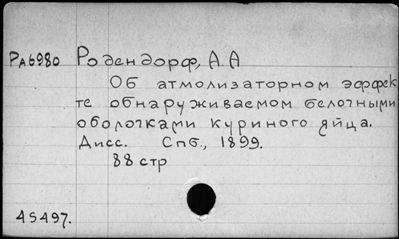 РАб980 Родендорф, А.А
Об атмолизаторном эффек
те обнаруживаемом белочными
оболочками куриного яйца.
Дисс. Спб., 1899.
88 стр
45497.